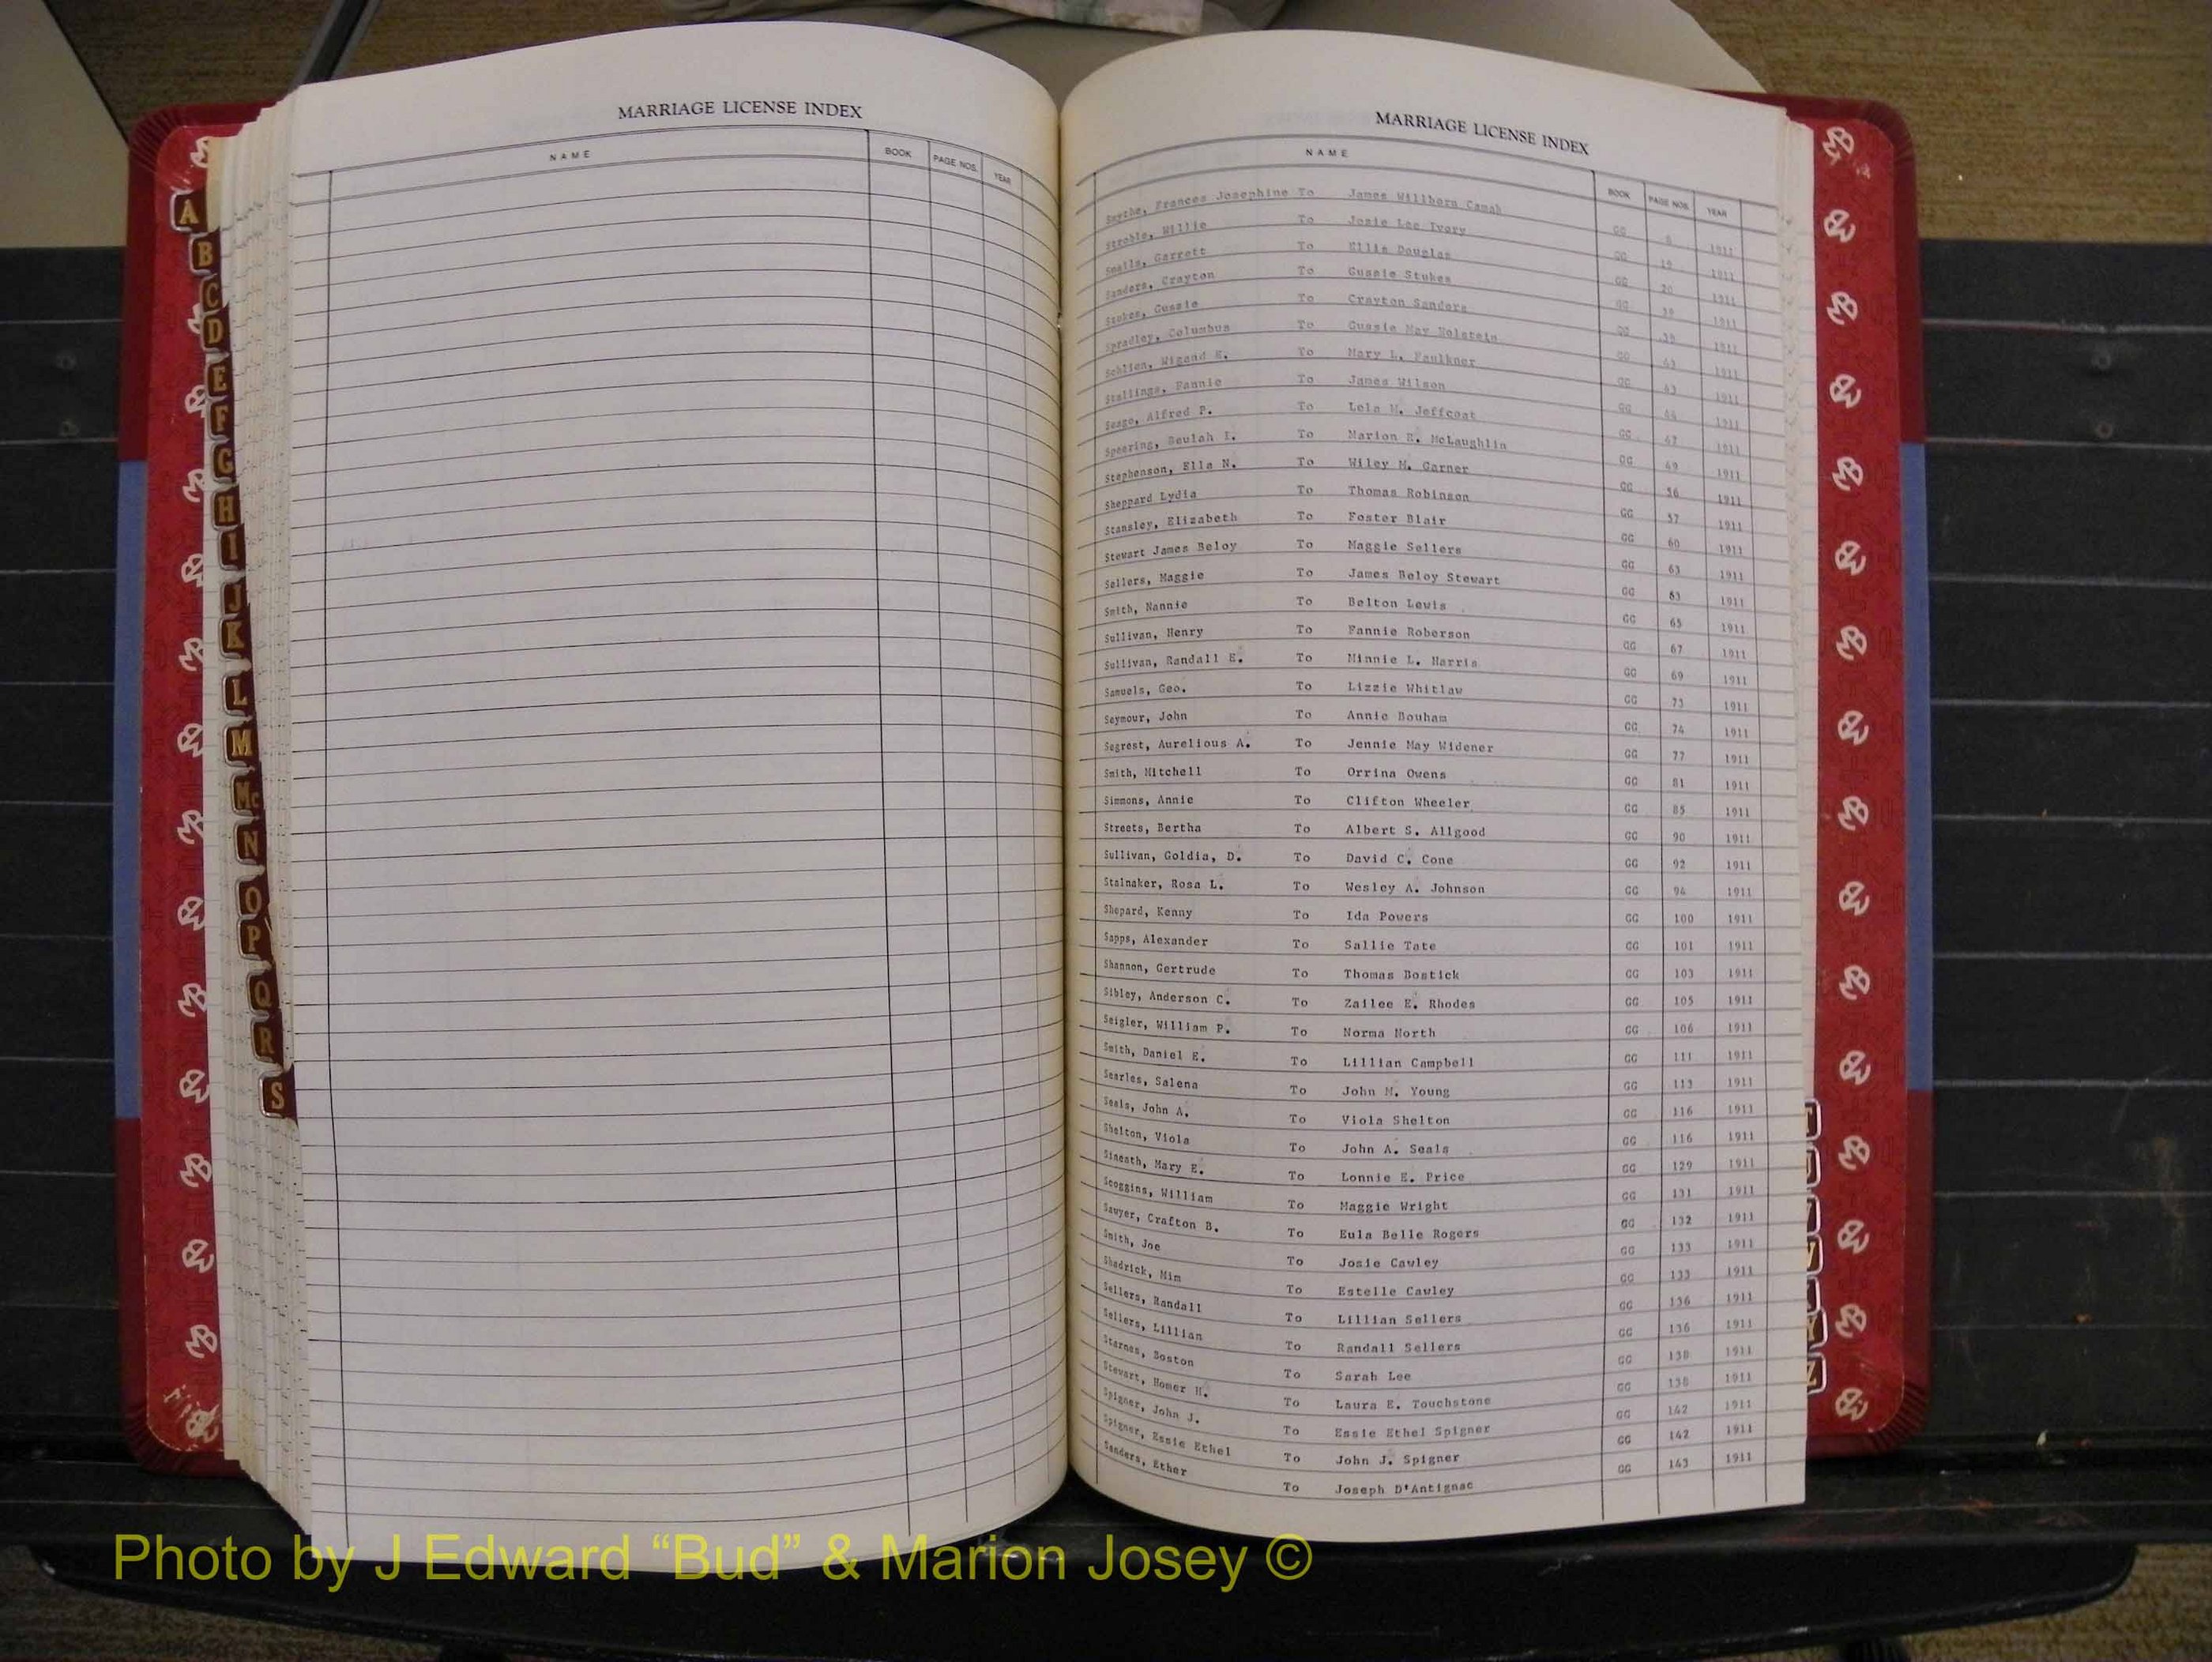 MARRIAGE LICENSE INDEX
NAME BOOK PAGE NOS. YEAR
MARRIAGE LICENSE INDEX
NAME BOOK PAGE NOS. YEAR
Smythe, Frances Josephine To James Willborn Camah GG 1911
Stroble, Willie To Josie Lee Ivory GG 19 1911
Smalls, Garrett To Ellis Douglas GG 20 1911
Sanders, Crayton To Gussie Stukes GG 39 1911
Stokes, Gussie To Crayton Sanders GG 39 1911
Spradley, Columbus To Gussie May Holstein GG 43 1911
Schlien, Wigand H. To Mary L. Faulkner GG 43 1911
Stallings, Fannie To James Wilson GG 44 1911
Seago, Alfred P. To Lola M. Jeffcoat GG 47 1911
Speering, Beulah I. To Marion E. McLaughlin GG 49 1911
Stephenson, Ella N. To Wiley M. Garner GG 56 1911
Sheppard Lydia To Thomas Robinson GG 57 1911
Stansley, Elizabeth To Foster Blair GG 60 1911
Stewart James Beloy To Maggie Sellers GG 63 1911
Sellers, Maggie To James Beloy Stewart GG 63 1911
Smith, Nannie To Belton Lewis GG 65 1911
Sullivan, Henry To Fannie Roberson GG 67 1911
Sullivan, Randall E. To Minnie L. Harris GG 69 1911
Samuels, Geo. To Lizzie Whitlaw GG 73 1911
Seymour, John To Annie Bouham GG 74 1911
Segrest, Aurelious A. To Jennie May Widener GG 77 1911
Smith, Mitchell To Orrina Owens GG 81 1911
Simmons, Annie To Clifton Wheeler GG 85 1911
Streets, Bertha To Albert S. Allgood GG 90 1911
Sullivan, Goldia, D. To David C. Cone GG 92 1911
Stalnaker, Rosa L. To Wesley A. Johnson GG 94 1911
Shepard, Kenny To Ida Powers GG 100 1911
Sapps, Alexander To Sallie Tate GG 101 1911
Shannon, Gertrude To Thomas Bostick GG 103 1911
Sibley, Anderson C. To Zailee E. Rhodes GG 105 1911
Seigler, William P. To Norma North GG 106 1911
Smith, Daniel E. To Lillian Campbell GG 111 1911
Searles, Salena To John M. Young GG 113 1911
Seals, John A. To Viola Shelton GG 116 1911
Shelton, Viola To John A. Seals GG 116 1911
Sineath, Mary E. To Lonnie E. Price GG 129 1911
Scoggins, William To Maggie Wright GG 131 1911
Sawyer, Crafton B. To Eula Belle Rogers GG 132 1911
Smith, Joe To Josie Cawley GG 133 1911
Shadrick, Mim To Estelle Cawley GG 133 1911
Sellers, Randall To Lillian Sellers GG 136 1911
Sellers, Lillian To Randall Sellers GG 136 1911
Starnes, Boston To Sarah Lee GG 138 1911
Stewart, Homer H. To Laura E. Touchstone GG 138 1911
Spigner, John J. To Essie Ethel Spigner GG 142 1911
Spigner, Essie Ethel To John J. Spigner GG 142 1911
Sanders, Ether To Joseph D'Antignac GG 143 1911
A
B
C
D
E
F
G
H
I
J
K
L
M
Mc
N
O
P
Q
R
S
Y
Z
Photo by J Edward “Bud” & Marion Josey ©